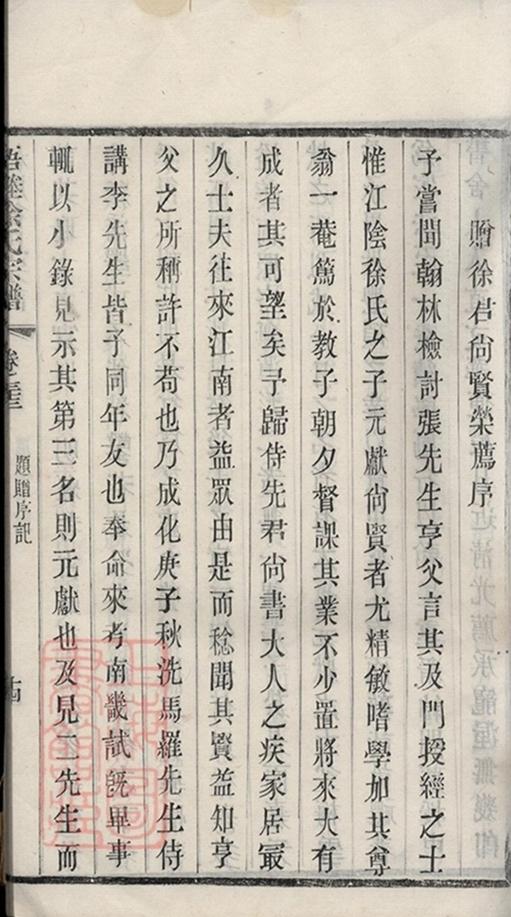 贈徐君尙賢榮薦序
予嘗聞翰林檢討張先生亨父言其及門授經之士
惟江陰徐氏之子元獻尙賢者尤精敏嗜學加其尊
翁一菴篤於教子朝夕督課其業不少置將來大有
成者其可望矣予歸侍先君尙書大人之疾家居寂
久士夫往來江南者益眾由是而稔聞其賢益知亨
父之所稱許不苟也乃成化庚子秋洗馬羅先生侍
講李先生皆予同年友也奉命來考南畿試旣畢事
輒以小錄見示其第三名則元獻也及見二先生而
梧塍徐氏宗譜
卷
題贈序記
十四